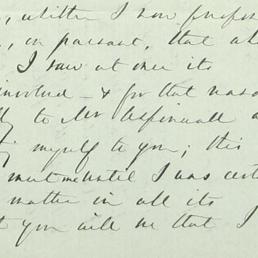 , whither I now propos
, en passant, that a
I saw at once its
involved - & for that reaso
to Mr Aspinwall a
myself to you; this
until I was certa
matter in all its
you will me that I